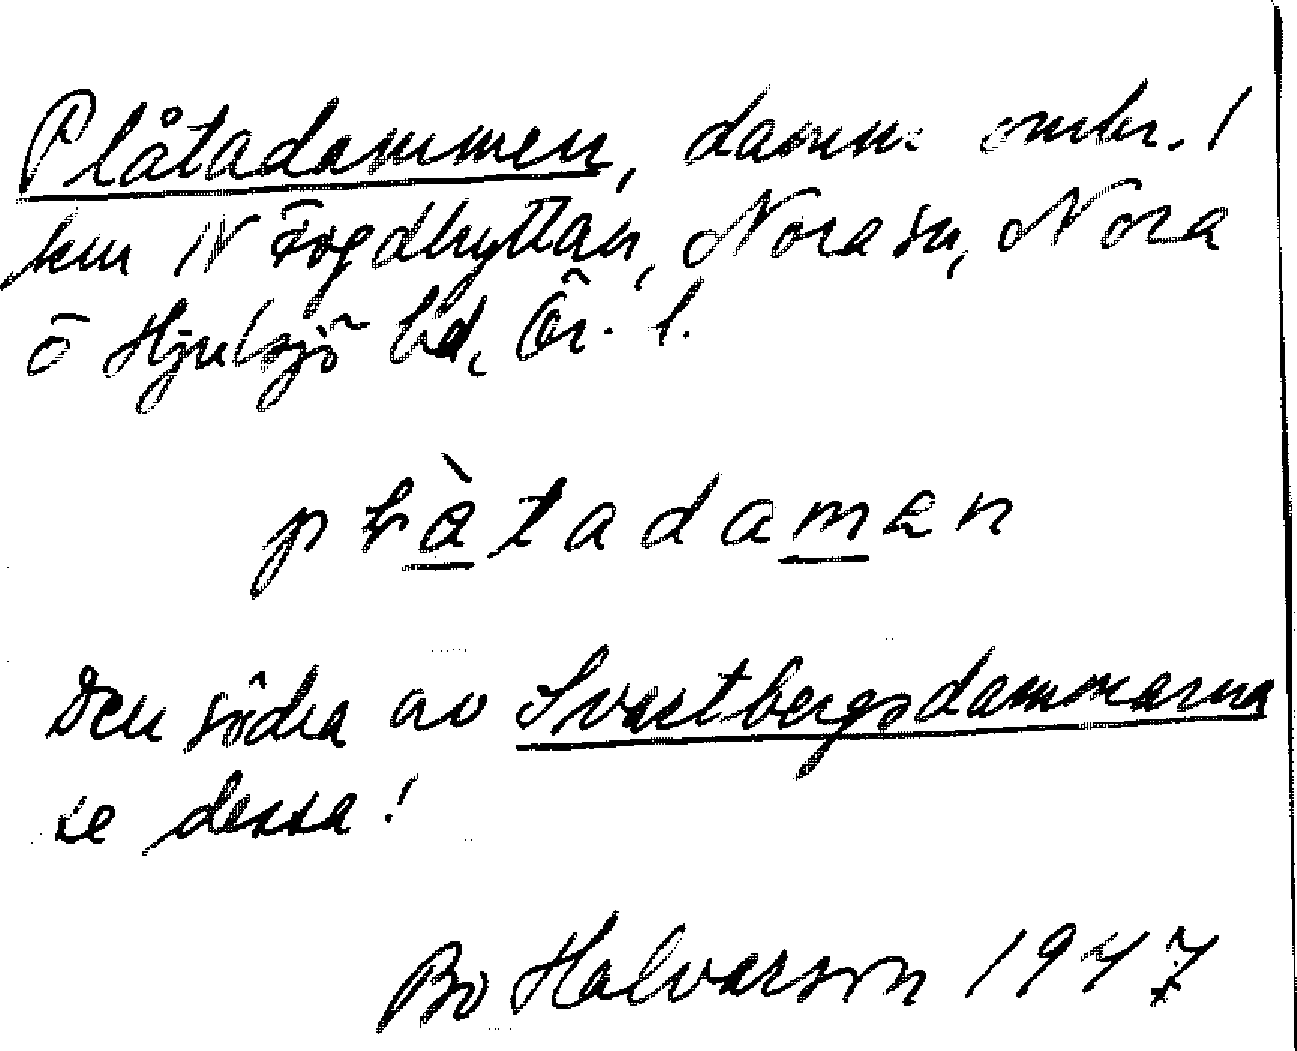 Plåtadammen, damm omkr. 1
km N Fogdhyttan, Nora sn, Nora
o Hjulsjö bd, Ör. l.
plàtadamen
Den södra av Svartbergsdammarna
se dessa!
Bo Halvarson 1947